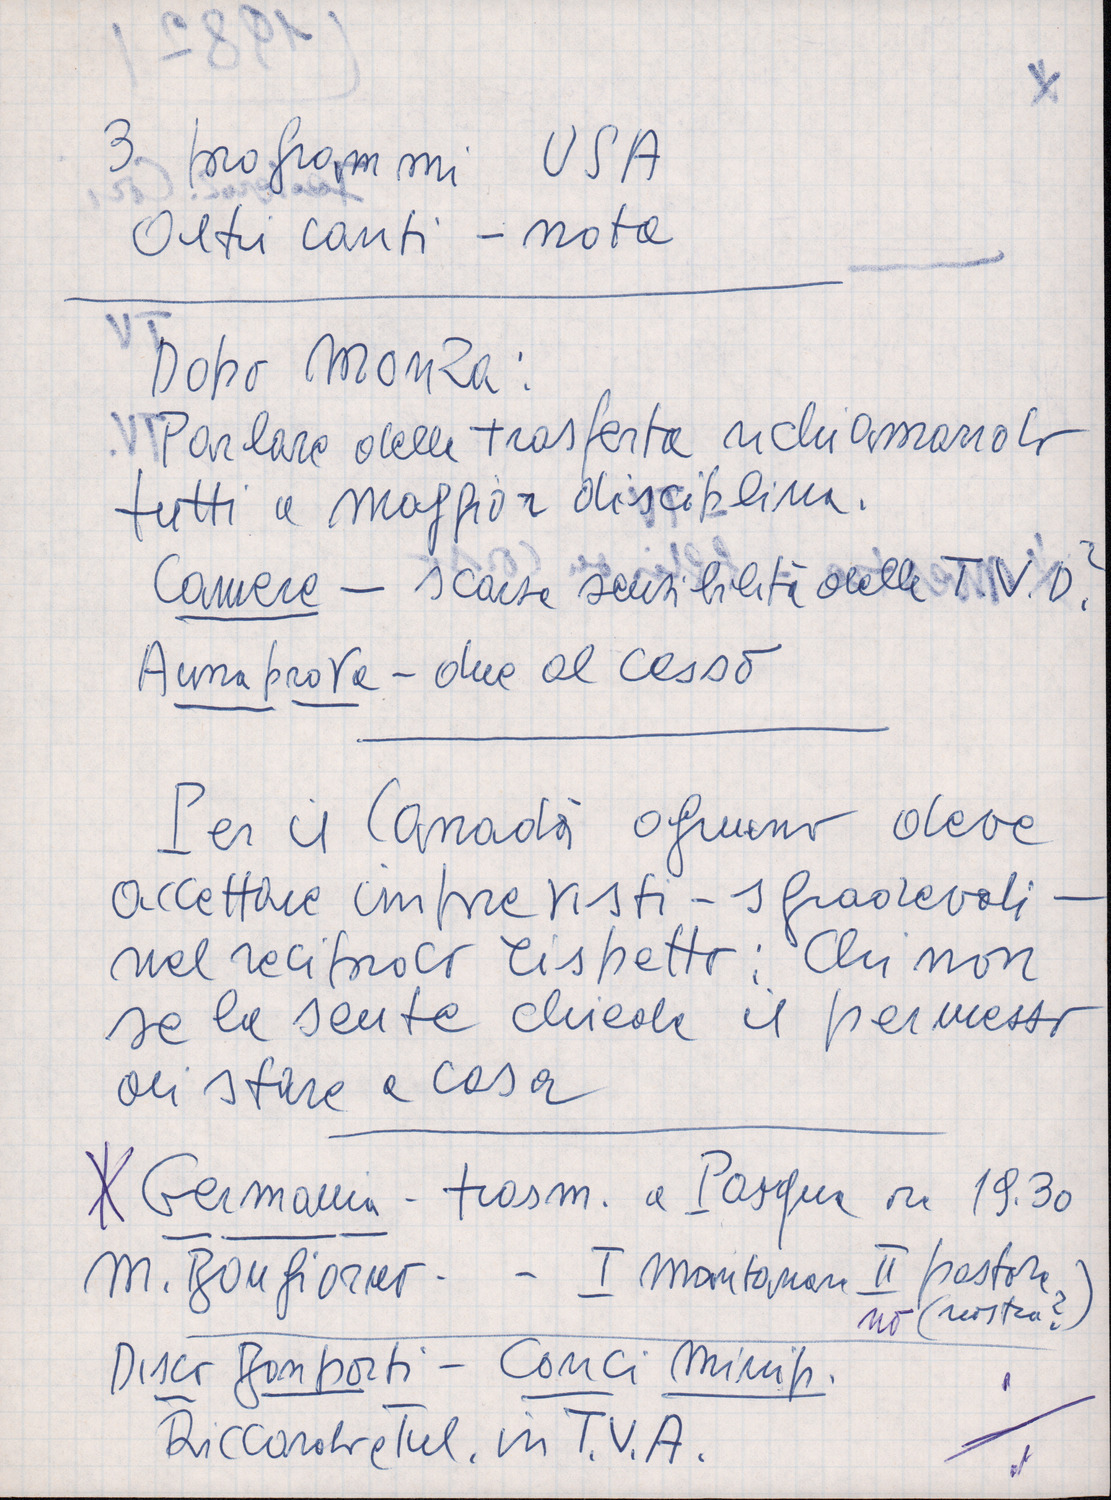 3 programmi USA
Altri canti - nota
Dopo Monza:
Parlare della trasferta richiamando
tutti a maggior disciplina.
Camere - scarsa sensibilità della T.V.D.?
A una prova - due al cesso
Per il Canadà ognuno deve
accettare imprevisti - sgradevoli -
nel reciproco rispetto; Chi non
se la sente chieda il permesso
di stare a casa
X Germania - trasm. a Pasqua ore 19.30
M. Bongiorno. - I Montanara II pastora
no (nostra?)
Disco Bonporti - Conci Minip.
Riccardo e Tul. in T.V.A.